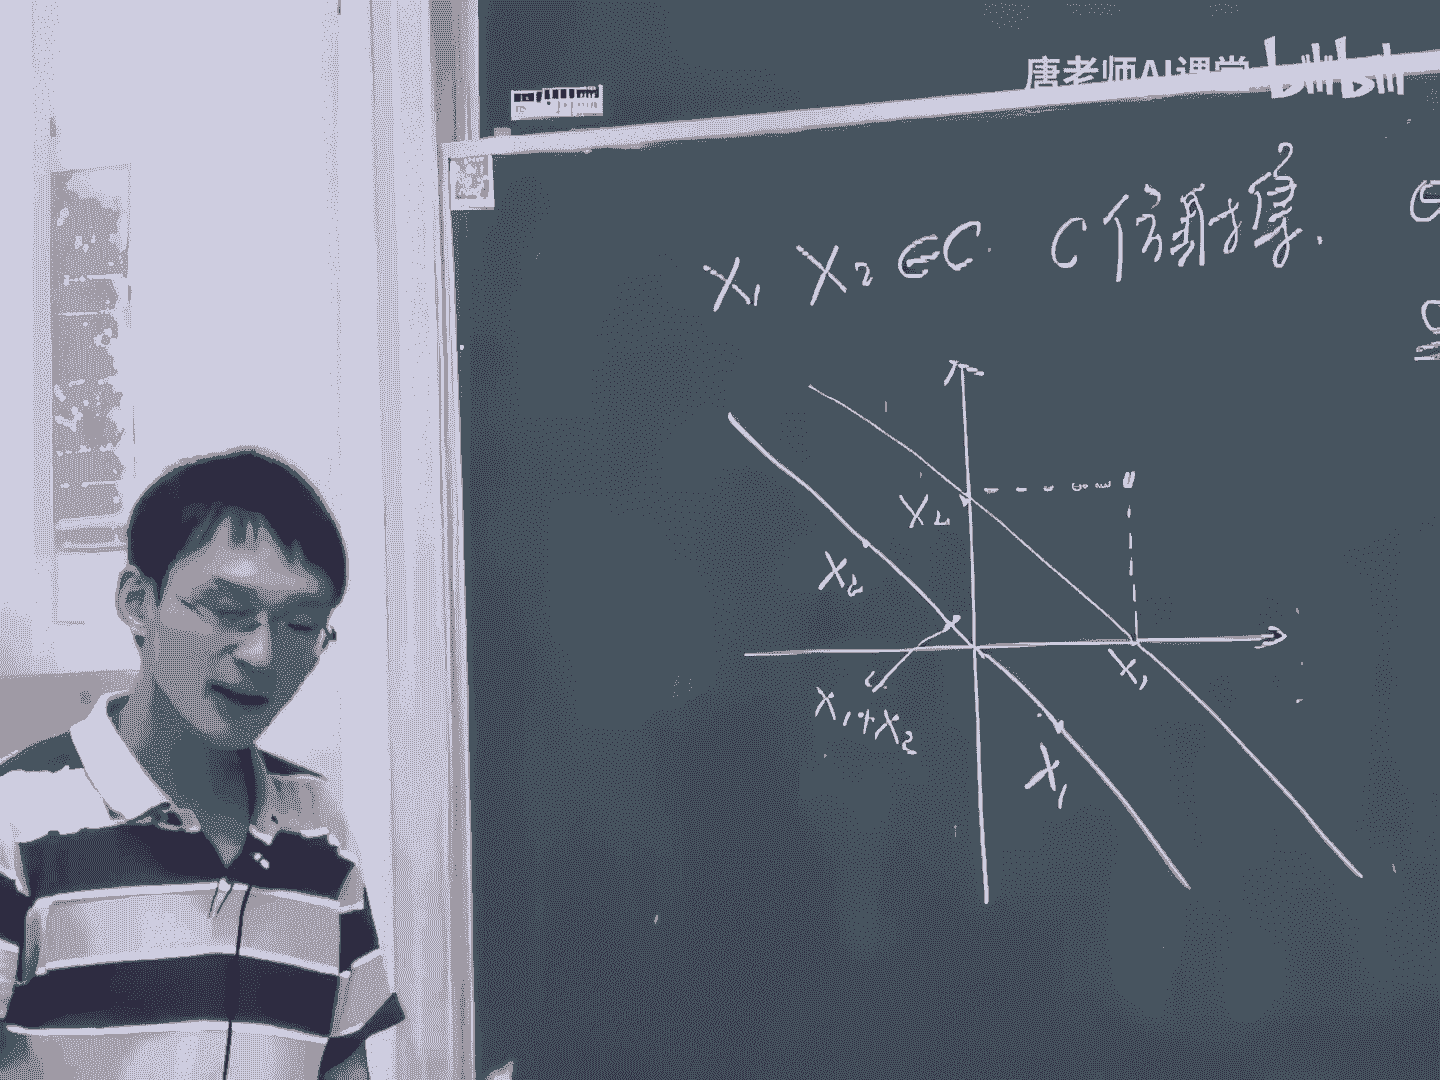 唐老师AI课堂 bilibili
X₁ X₂ ∈ C. C 仿射集.
X₂
X₂
X₁
X₁+X₂
X₁